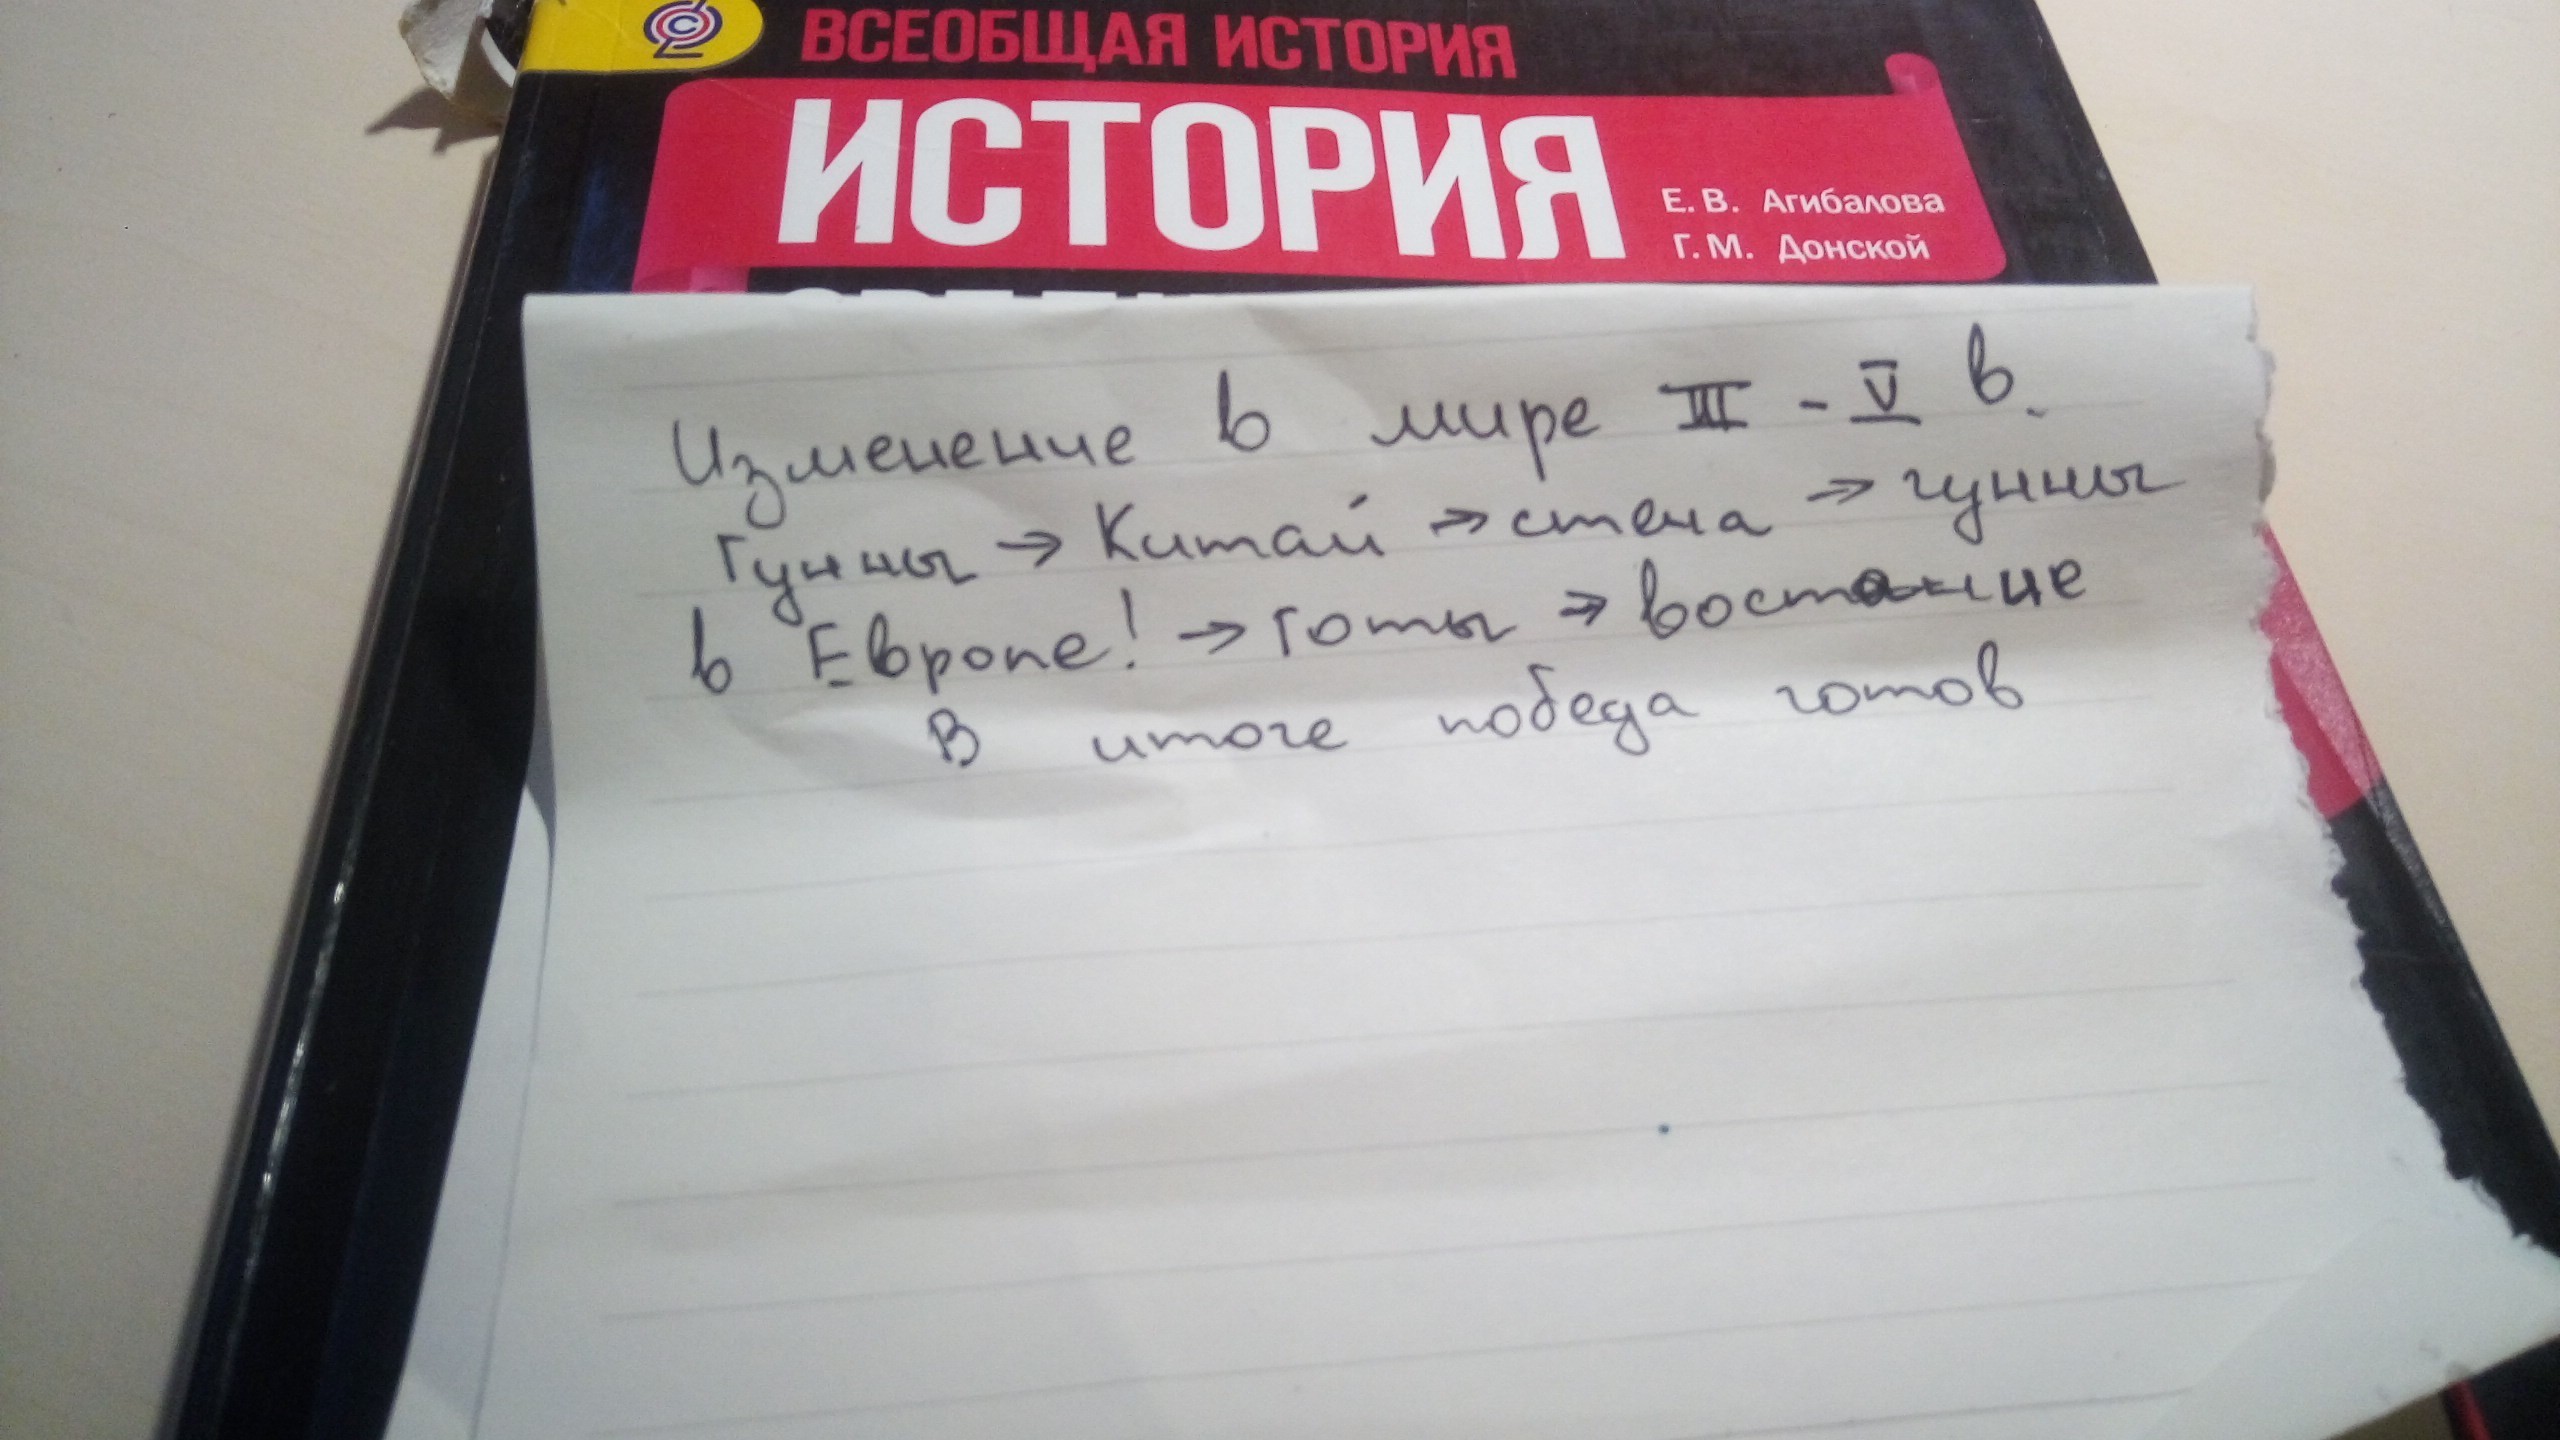 ВСЕОБЩАЯ ИСТОРИЯ
ИСТОРИЯ
Е. В. Агибалова
Г. М. Донской
Изменение в мире III - V в.
Гунны → Китай → стена → гунны
в Европе! → Готы → востание
В итоге победа готов